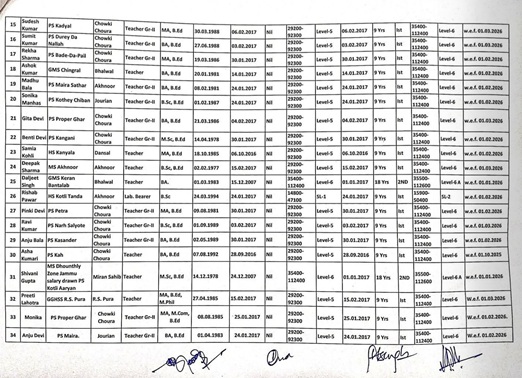 15 Sudesh Kumar PS Kadyal Chowki Choura Teacher Gr-II MA, B.Ed 30.03.1988 06.02.2017 Nil 29200-92300 Level-5 06.02.2017 9 Yrs Ist 35400-112400 Level-6 w.e.f. 01.03.2026
16 Sumit Kumar PS Durey Da Nallah Chowki Choura Teacher Gr-II BA, B.Ed 27.06.1988 03.02.2017 Nil 29200-92300 Level-5 03.02.2017 9 Yrs Ist 35400-112400 Level-6 w.e.f. 01.03.2026
17 Rekha Sharma PS Bade-Da-Pail Chowki Choura Teacher Gr-II MA, B.Ed 19.03.1986 30.01.2017 Nil 29200-92300 Level-5 30.01.2017 9 Yrs Ist 35400-112400 Level-6 w.e.f. 01.02.2026
18 Ashok Kumar GMS Chingral Bhalwal Teacher Gr-II BA, B.Ed 20.01.1981 14.01.2017 Nil 29200-92300 Level-5 14.01.2017 9 Yrs Ist 35400-112400 Level-6 w.e.f. 01.02.2026
19 Madhu Bala PS Maira Sathar Akhnoor Teacher Gr-II BA, B.Ed 08.02.1981 24.01.2017 Nil 29200-92300 Level-5 24.01.2017 9 Yrs Ist 35400-112400 Level-6 w.e.f. 01.02.2026
20 Sonika Manhas PS Kothey Chiban Jourian Teacher Gr-II B.Sc, B.Ed 01.02.1987 24.01.2017 Nil 29200-92300 Level-5 24.01.2017 9 Yrs Ist 35400-112400 Level-6 w.e.f. 01.02.2026
21 Gita Devi PS Proper Ghar Chowki Choura Teacher Gr-II BA, B.Ed 21.03.1986 04.02.2017 Nil 29200-92300 Level-5 04.02.2017 9 Yrs Ist 35400-112400 Level-6 w.e.f. 01.03.2026
22 Benti Devi PS Kangani Chowki Choura Teacher Gr-II M.Sc, B.Ed 14.04.1978 30.01.2017 Nil 29200-92300 Level-5 30.01.2017 9 Yrs Ist 35400-112400 Level-6 w.e.f. 01.02.2026
23 Samia Kohli HS Kanyala Dansal Teacher MA, B.Ed 18.10.1985 06.10.2016 Nil 29200-92300 Level-5 06.10.2016 9 Yrs Ist 35400-112400 Level-6
24 Deepak Sharma MS Akhnoor Akhnoor Teacher B.Sc, B.Ed 02.02.1977 15.02.2017 Nil 29200-92300 Level-5 15.02.2017 9 Yrs Ist 35400-112400 Level-6 w.e.f. 01.03.2026
25 Daljeet Singh GMS Keran Bantalab Bhalwal Teacher BA. 01.03.1983 15.12.2007 Nil 35400-112400 Level-6 01.01.2017 18 Yrs 2ND 35500-112600 Level-6 A w.e.f. 01.01.2026
26 Rishab Pawar HS Kotli Tanda Akhnoor Lab. Bearer B.Sc 24.03.1994 24.01.2017 Nil 14800-47100 SL-1 24.01.2017 9 Yrs Ist 15900-50400 SL-2 w.e.f. 01.02.2026
27 Pinki Devi PS Petra Chowki Choura Teacher Gr-II MA, B.Ed 09.08.1981 30.01.2017 Nil 29200-92300 Level-5 30.01.2017 9 Yrs Ist 35400-112400 Level-6 w.e.f. 01.02.2026
28 Ravi Kumar PS Narh Salyote Chowki Choura Teacher Gr-II B.Sc, B.Ed 01.09.1989 03.02.2017 Nil 29200-92300 Level-5 03.02.2017 9 Yrs Ist 35400-112400 Level-6 w.e.f. 01.03.2026
29 Anju Bala PS Kasander Chowki Choura Teacher Gr-II BA, B.Ed 02.05.1989 30.01.2017 Nil 29200-92300 Level-5 30.01.2017 9 Yrs Ist 35400-112400 Level-6 w.e.f. 01.02.2026
30 Asha Kumari PS Kah Chowki Choura Teacher BA, B.Ed 07.08.1992 28.09.2016 Nil 29200-92300 Level-5 28.09.2016 9 Yrs Ist 35400-112400 Level-6 w.e.f. 01.10.2025
31 Shivani Gupta MS Dhounthly Zone Jammu salary drawn PS Kotli Aaryan Miran Sahib Teacher M.Sc, B.Ed 14.12.1978 24.12.2007 Nil 35400-112400 Level-6 01.01.2017 18 Yrs 2ND 35500-112600 Level-6A W.e.f. 01.01.2026
32 Preeti Lahotra GGHSS R.S. Pura R.S. Pura Teacher MA, B.Ed, M.Phil 27.04.1985 15.02.2017 Nil 29200-92300 Level-5 15.02.2017 9 Yrs Ist 35400-112400 Level-6 W.e.f. 01.03.2026
33 Monika PS Proper Ghar Chowki Choura Teacher Gr-II MA, M.Com, B.Ed 08.08.1985 25.01.2017 Nil 29200-92300 Level-5 25.01.2017 9 Yrs Ist 35400-112400 Level-6 W.e.f. 01.02.2026.
34 Anju Devi PS Maira. Jourian Teacher Gr-II BA, B.Ed 01.04.1983 24.01.2017 Nil 29200-92300 Level-5 24.01.2017 9 Yrs Ist 35400-112400 Level-6 W.e.f. 01.02.2026